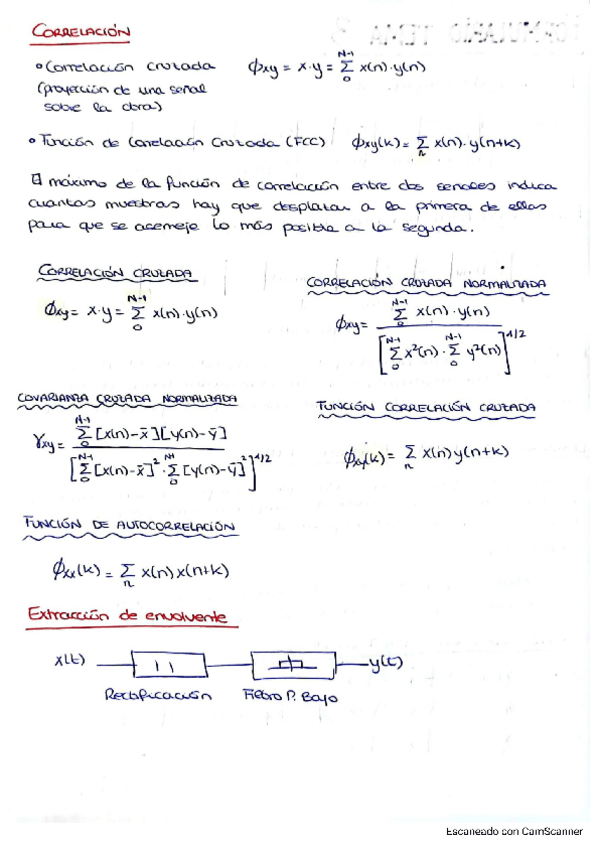 CORRELACIÓN
° Correlación cruzada ϕxy = x·y = Σ_0^{N-1} x(n)·y(n)
(proyección de una señal
sobre la otra)
° Función de Correlación Cruzada (FCC) ϕxy(k) = Σ_n x(n)·y(n+k)
El máximo de la función de correlación entre dos señales indica
cuantas muestras hay que desplazar a la primera de ellas
para que se asemeje lo más posible a la segunda.
CORRELACIÓN CRUZADA
ϕxy = x·y = Σ_0^{N-1} x(n)·y(n)
CORRELACIÓN CRUZADA NORMALIZADA
ϕxy = Σ_0^{N-1} x(n)·y(n) / [Σ_0^{N-1} x²(n) · Σ_0^{N-1} y²(n)]^{1/2}
COVARIANZA CRUZADA NORMALIZADA
γxy = Σ_0^{N-1} [x(n)-x̄][y(n)-ȳ] / [Σ_0^{N-1} [x(n)-x̄]² · Σ_0^{N-1} [y(n)-ȳ]²]^{1/2}
FUNCIÓN CORRELACIÓN CRUZADA
ϕxy(k) = Σ_n x(n)y(n+k)
FUNCIÓN DE AUTOCORRELACIÓN
ϕxx(k) = Σ_n x(n)x(n+k)
Extracción de envolvente
x(t) | | y(t)
Rectificación Filtro P. Bajo
Escaneado con CamScanner